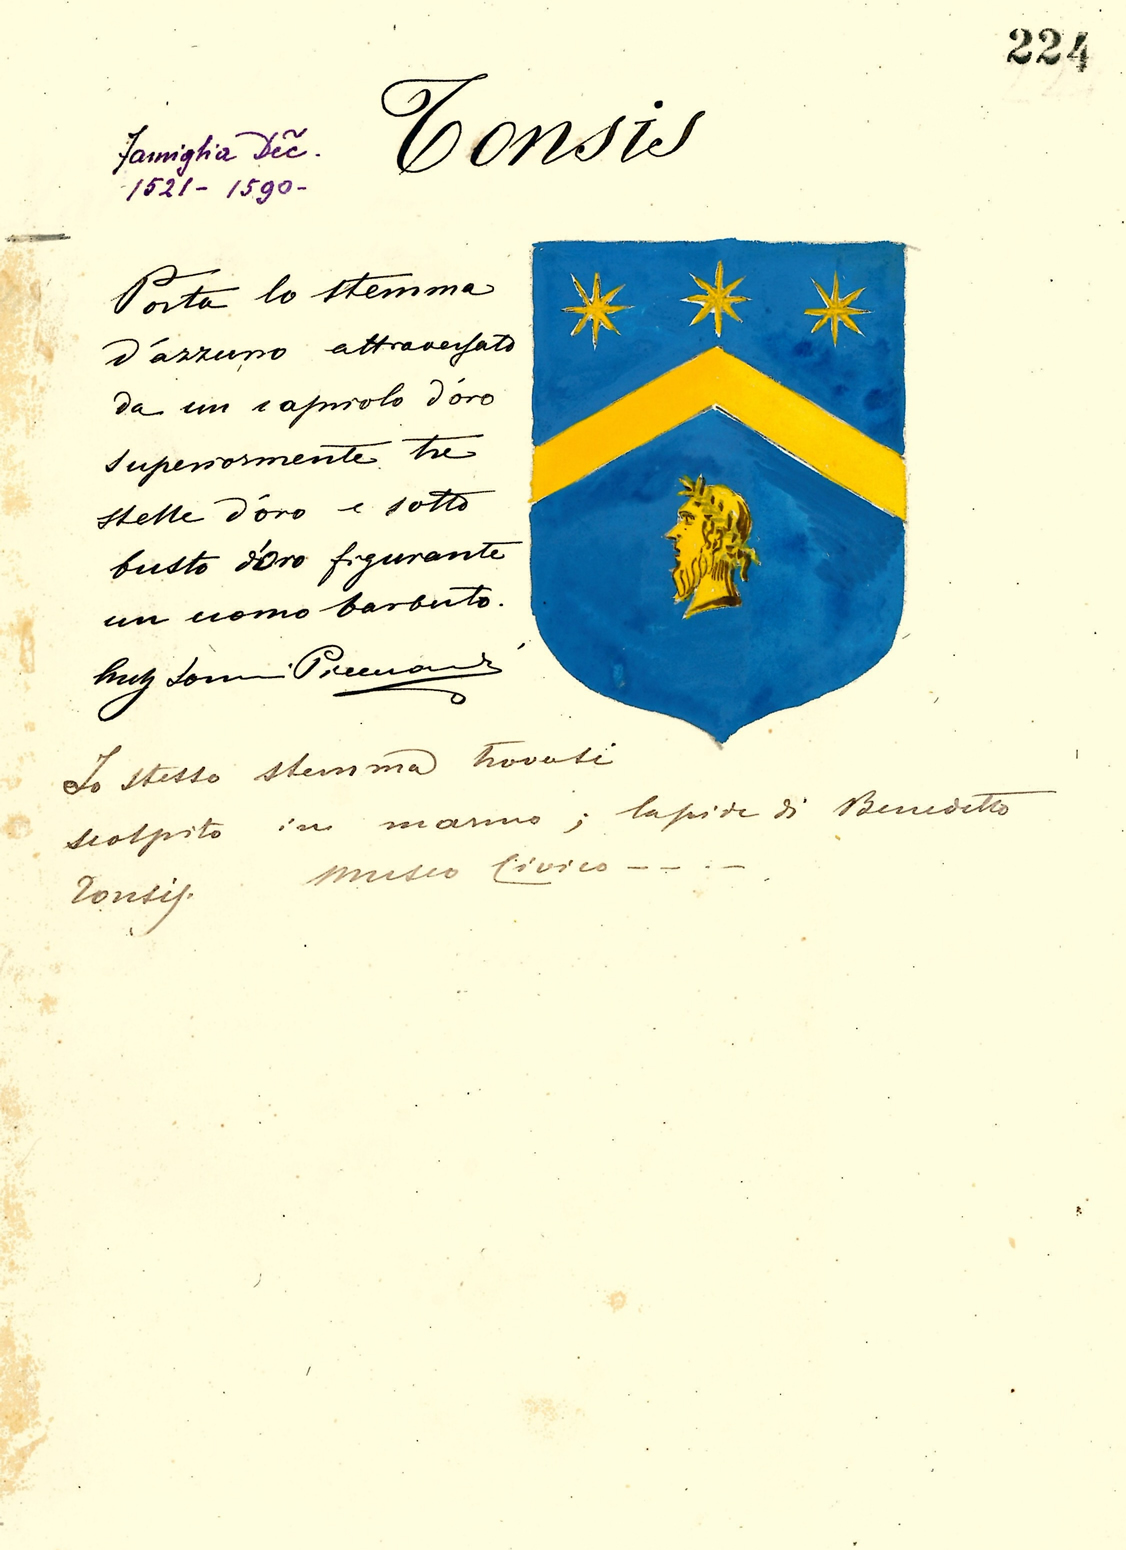 224
Tonsis
Famiglia Dec̃.
1521- 1590-
Porta lo stemma
d'azzurro attraversato
da un capriolo d'oro
superiormente tre
stelle d'oro e sotto
busto d'oro figurante
un uomo barbuto.
Lo stesso stemma trovasi
scolpito in marmo; lapide di Benedetto
Tonsis. Museo Civico - - - -